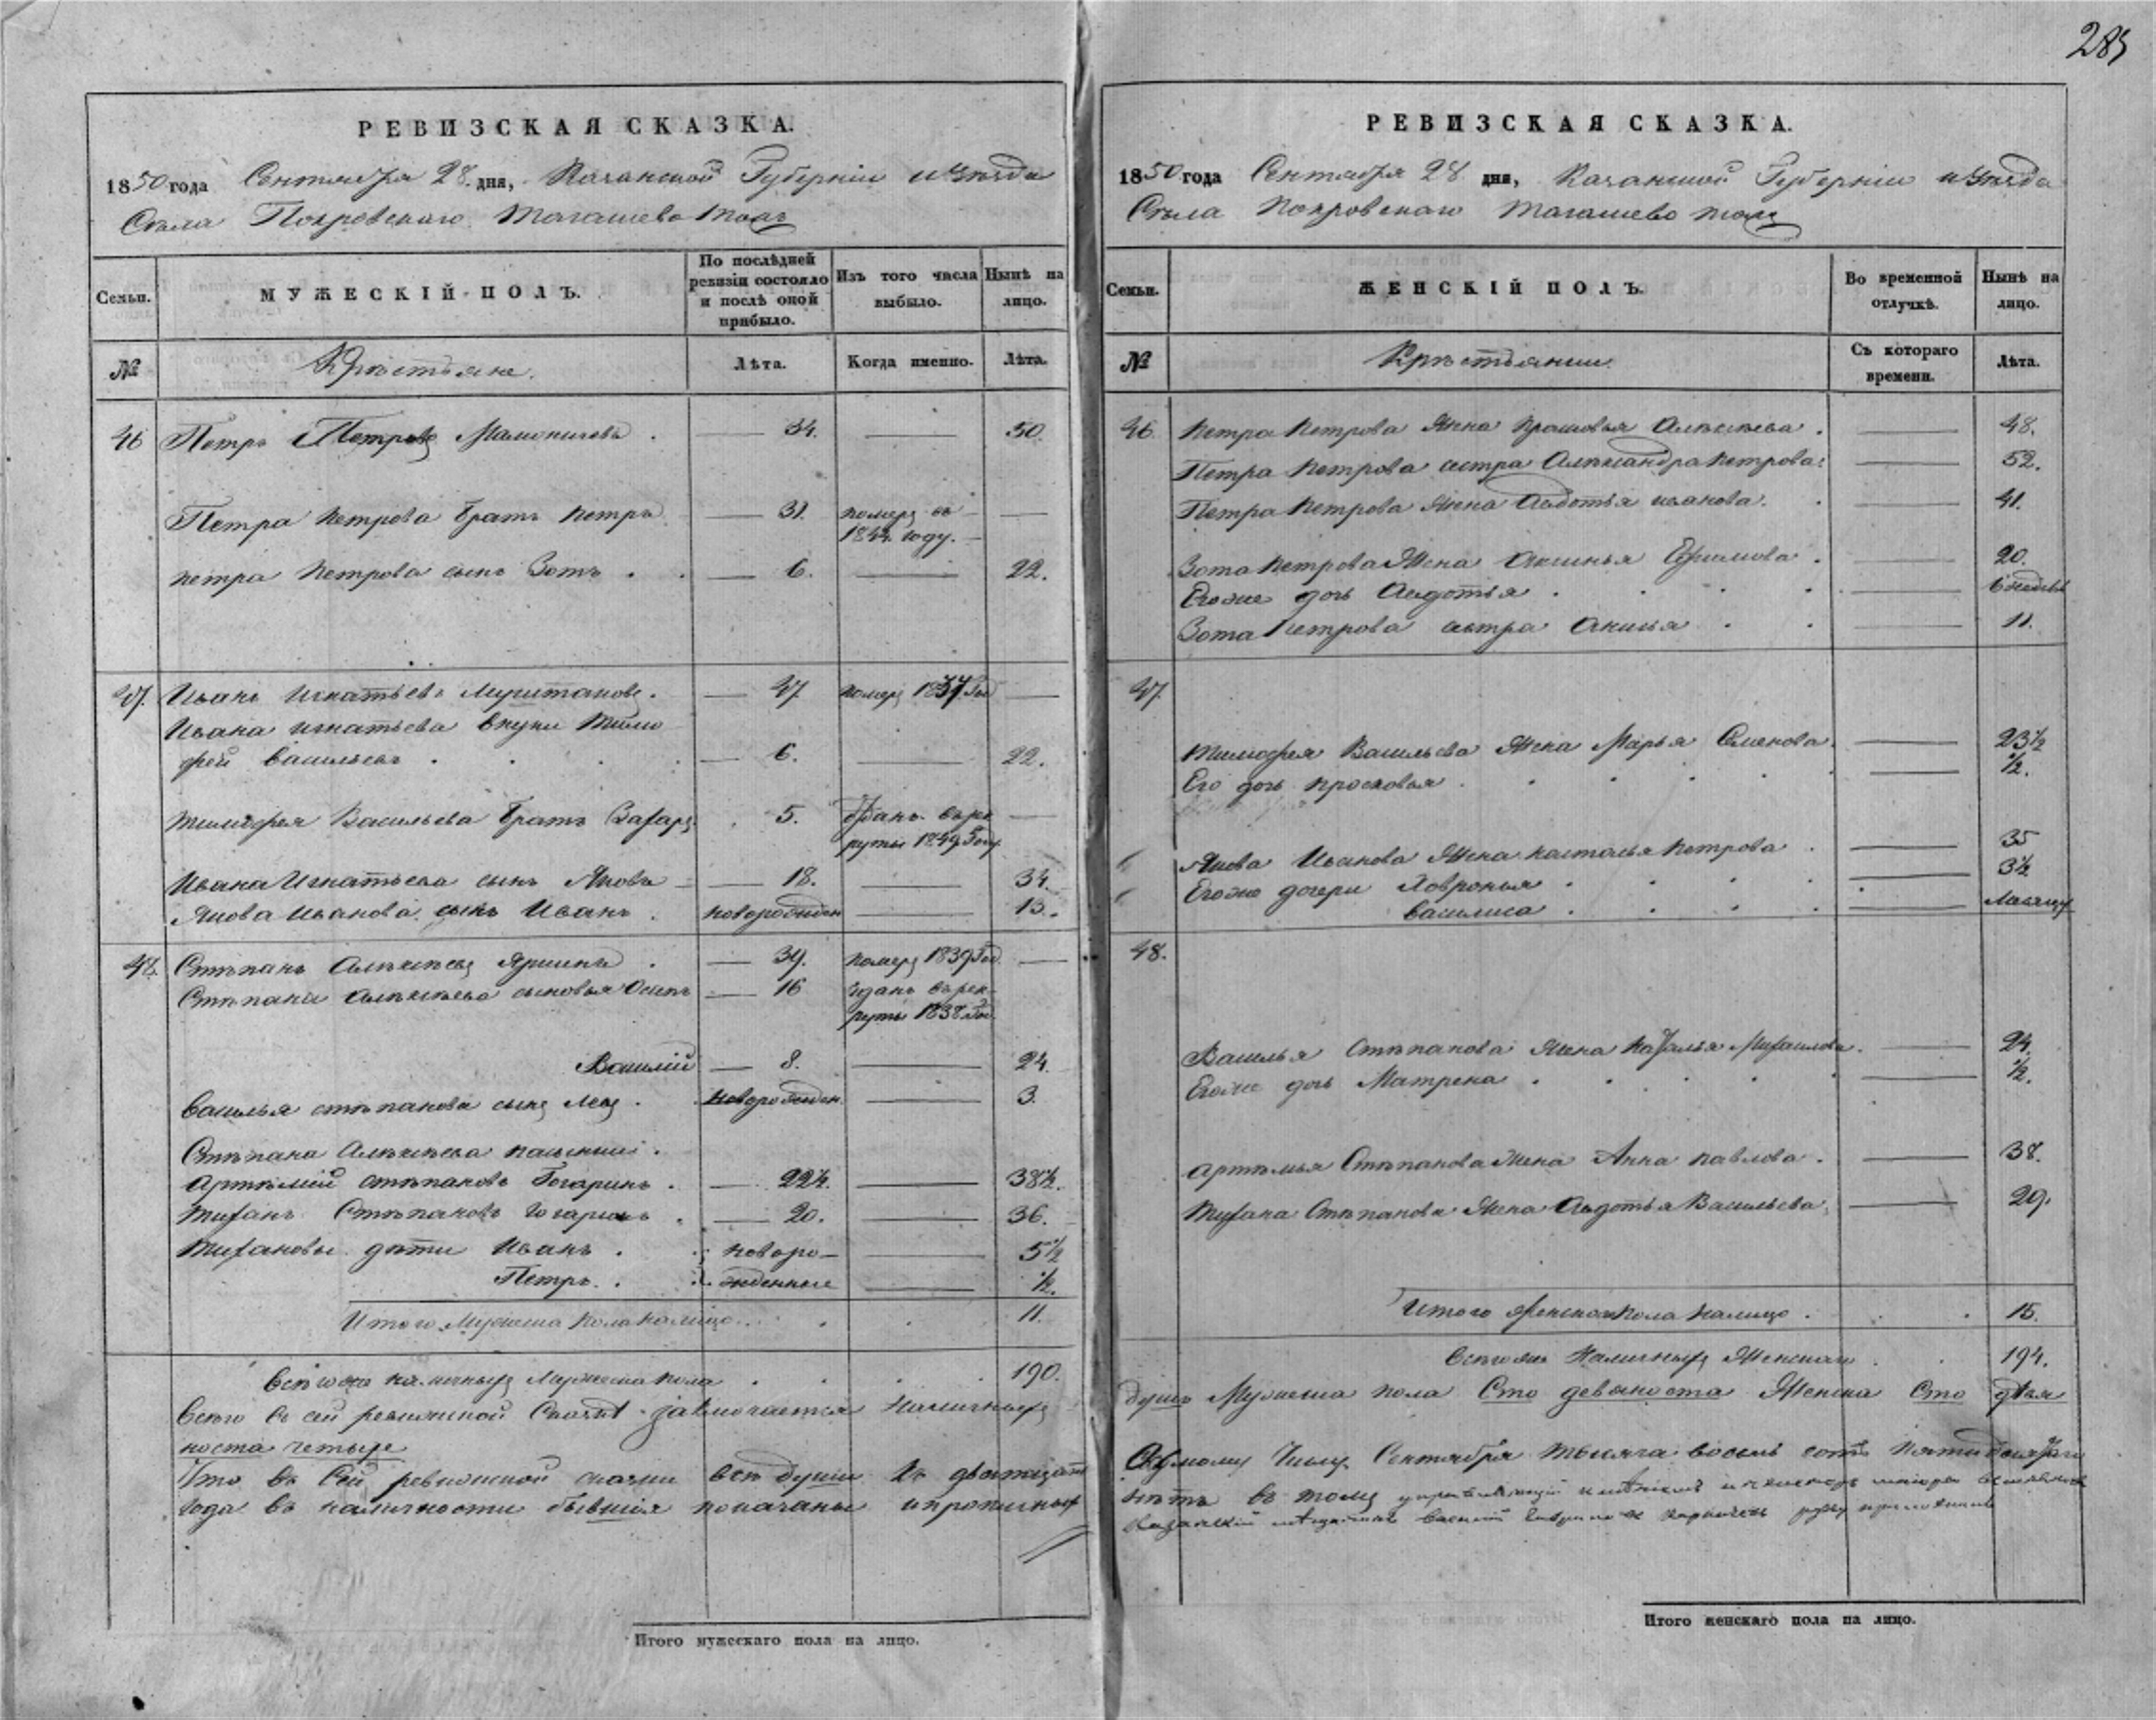 285
РЕВИЗСКАЯ СКАЗКА.
1850 года Сентября 28. дня, Казанской Губернiи и уѣзда
Села Покровскаго Тагашево тожъ
Семьи.
МУЖЕСКIЙ ПОЛЪ.
По послѣдней ревизiи состояло и послѣ оной прибыло.
Изъ того числа выбыло.
Нынѣ на лицо.
№
Крѣстьяне.
Лѣта.
Когда именно.
Лѣта.
46 Петръ Петровъ . — 34. — 50.
Петра Петрова братъ Петръ — 31. померъ въ —
1844. году.
петра Петрова сынъ Зотъ . . — 6. — 22.
47. Иванъ Игнатьевъ . — 47. померъ 1837 Год —
Ивана Игнатьева внуки Тимо
фей Васильевъ . . . — 6. — 22.
Тимофея Васильева братъ Захаръ . 5. Зданъ въ рек —
руты 1849 Году
Ивана Игнатьева сынъ Яковъ — 18. — 34.
Якова Иванова сынъ Иванъ . новорожден — 13.
48. Стѣпанъ Алѣксѣевъ — 39. померъ 1839 Год. —
Стѣпана Алѣксѣева сыновья Осипъ — 16 Зданъ въ рек-
руты 1838 Год.
Василiй — 8. — 24.
Василья стѣпанова сынъ . новорожден. — 3.
Стѣпана Алѣксѣева пасынки .
Артѣмiй стѣпановъ Гогаринъ . — 22½. — 38½.
Стѣпановъ Гогаринъ . — 20. — 36.
дѣти Иванъ . новоро- — 5½
Петръ . жденные — ½.
Итого Мужеска пола налицо . . . 11.
Всѣгоже наличныхъ Мужеска пола . . . 190.
Всего въ сей ревижской Сказкѣ заключается наличныхъ
носта четыре
Что въ Сей ревижской сказки всѣ души къ дватцать
года въ наличности бывшiя показаны и прописныхъ
Итого мужескаго пола на лицо.
РЕВИЗСКАЯ СКАЗКА.
1850 года Сентября 28 дня, Казанской Губернiи и уѣзда
Села Покровскаго Тагашево тожъ
Семьи.
ЖЕНСКIЙ ПОЛЪ.
Во временной отлучкѣ.
Нынѣ на лицо.
№
Крѣстьянки.
Съ котораго времени.
Лѣта.
46. Петра Петрова Жена Прасковья Алѣксѣева . — 48.
Петра Петрова сестра Алѣксандра Петрова . — 52.
Петра Петрова Жена Авдотья иванова . — 41.
Зота Петрова Жена Аксинья Ефимова . — 20.
Егоже дочь Авдотья . . . — 6 недель
Зота Петрова сестра Анисья . . — 11.
47.
Тимофея Васильева Жена Марья Семенова . — 23½
Его дочь Просковья . . . — ½.
Якова Иванова Жена Настасья Петрова . — 35
Егоже дочери Ховронья . . . — 3½
Василиса . . . —
48.
Василья Стѣпанова Жена Наталья Михаилова . — 24.
Егоже дочь Матрена . . . — ½.
Артѣмья Стѣпанова Жена Анна Павлова . — 38.
Стѣпанова Жена Авдотья Васильева . — 29.
Итого Женска пола налицо . . . 15.
Всѣгоже Наличныхъ Женскаго . . 194.
душъ Мужеска пола Сто девяноста Женска Сто девя
Осьмому Числу Сентября тысяча восемь сотъ пятидесятаго
нѣтъ въ томъ
руку приложилъ
Итого женскаго пола на лицо.